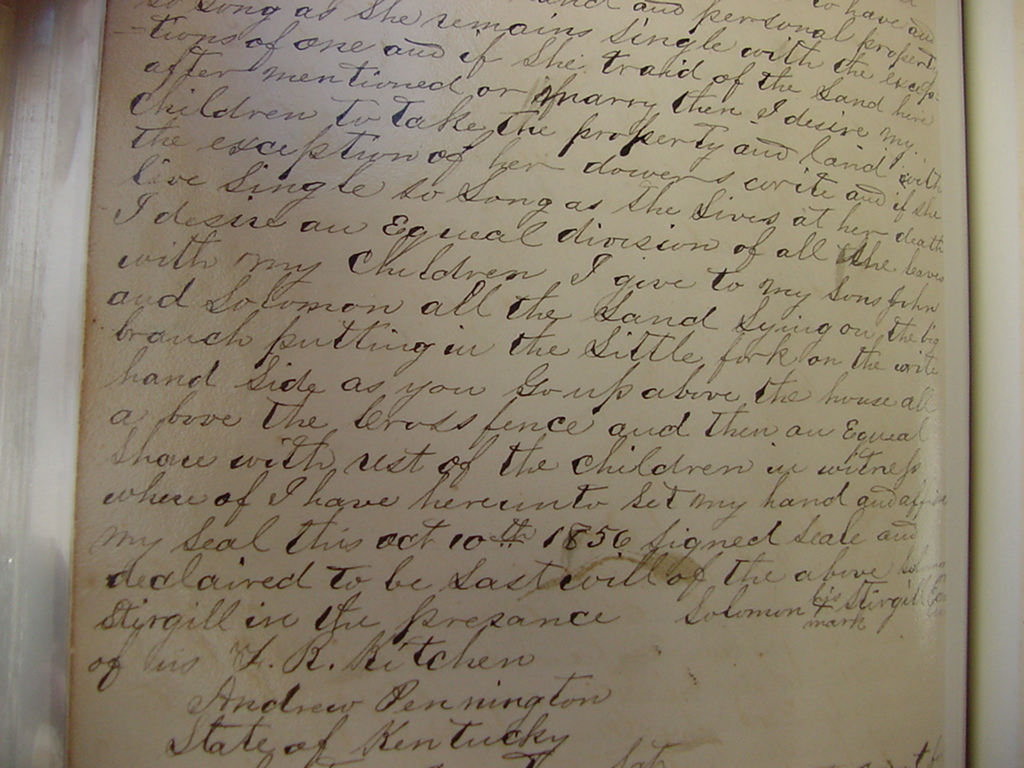 and personal property to have and
so long as she remains single with the excep-
-tions of one and if she traid of the land here
after mentioned or marry then I desire my
children to take the property and land with
the exception of her dowers write and if she
live single so long as she lives at her death
I desire an Equeal division of all she leaves
with my children I give to my sons John
and Solomon all the land lying on the big
branch putting in the little fork on the write
hand side as you go up above the house all
a bove the Cross fence and then an Equeal
Share with rest of the children in witness
where of I have hereunto set my hand and affix
my seal this oct 10th 1856 signed seale and
declaired to be last will of the above Solomon
Stirgill in the presance Solomon his X mark Stirgill
of us F. R. Kitchen
Andrew Pennington
State of Kentucky